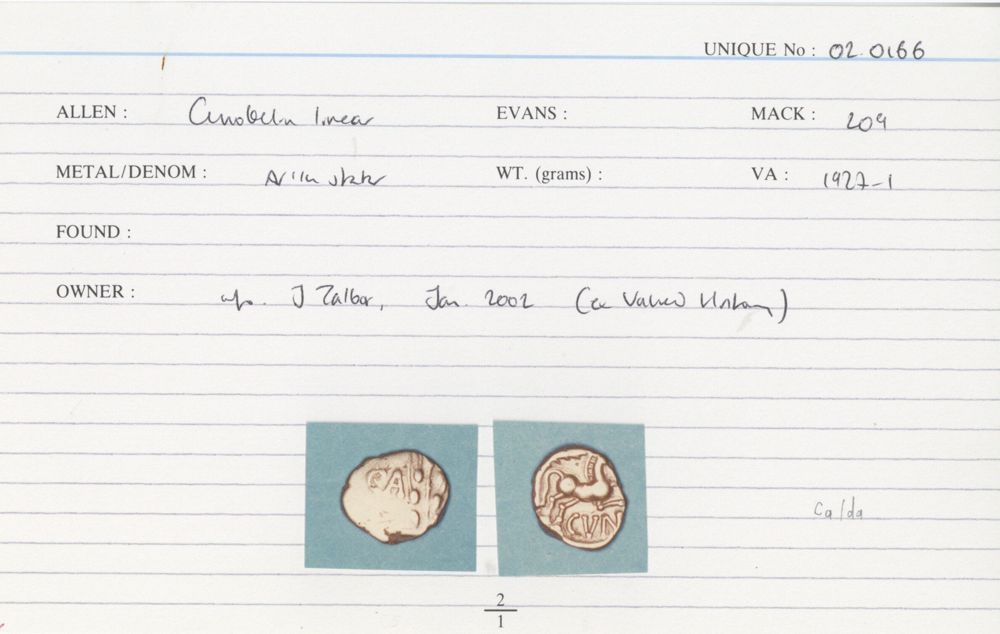 UNIQUE No : 02.0166
ALLEN : Cunobelin linear EVANS : MACK : 209
METAL/DENOM : stater WT. (grams) : VA : 1927-1
FOUND :
OWNER : J Talbot, Jan. 2002 (ex
CA
CVN
Ca/da
2
1